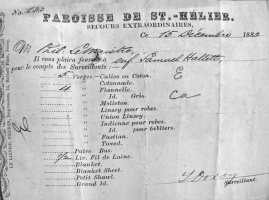 PAROISSE DE ST.-HÉLIER.
SECOURS EXTRAORDINAIRES,
Ce 15 Decembre 1882
M
Il vous plaira fournir à Samuel Hallett
pour le compte des Surveillants
5 Verges Calico en Coton. E
Cotonnade.
4 Flannelle.
Id. Gris. Ca
Molleton.
Linsey pour robes.
Union Linsey.
Indienne pour robes.
Id. pour tabliers.
Fustian.
Tweed.
Paire Bas.
1/2 Liv. Fil de Laine.
Blanket.
Blanket Sheet.
Petit Shawl.
Grand Id.
Surveillant.